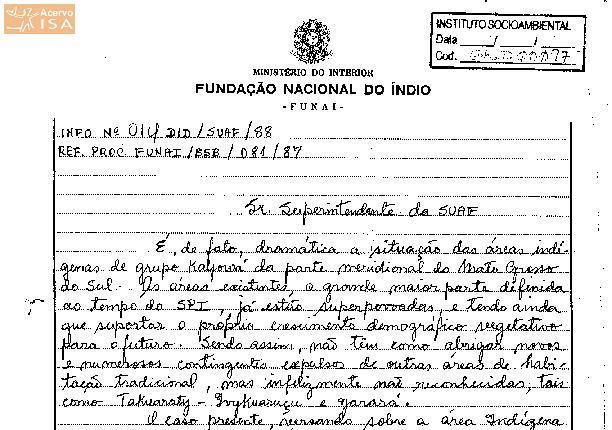 Acervo
ISA
INSTITUTO SOCIOAMBIENTAL
Data / /
Cod.
MINISTÉRIO DO INTERIOR
FUNDAÇÃO NACIONAL DO ÍNDIO
-FUNAI-
INFO Nº 014/DID/SUAF/88
REF. PROC FUNAI/BSB/081/87
Sr. Superintendente da SUAF
É, de fato, dramática a situação das áreas indí-
genas de grupo Kaiowá da parte meridional do Mato Grosso
do Sul. As áreas existentes, a grande maior parte definida
ao tempo do SPI, já estão superpovoadas e tendo ainda
que suportar o próprio crescimento demográfico vegetativo
para o futuro. Sendo assim, não têm como abrigar novos
e numerosos contingentes expulsos de outras áreas de habi-
tação tradicional, mas infelizmente não reconhecidas, tais
como Takuaraty-Yvykuarusu e Jarará.
O caso presente, versando sobre a área Indígena